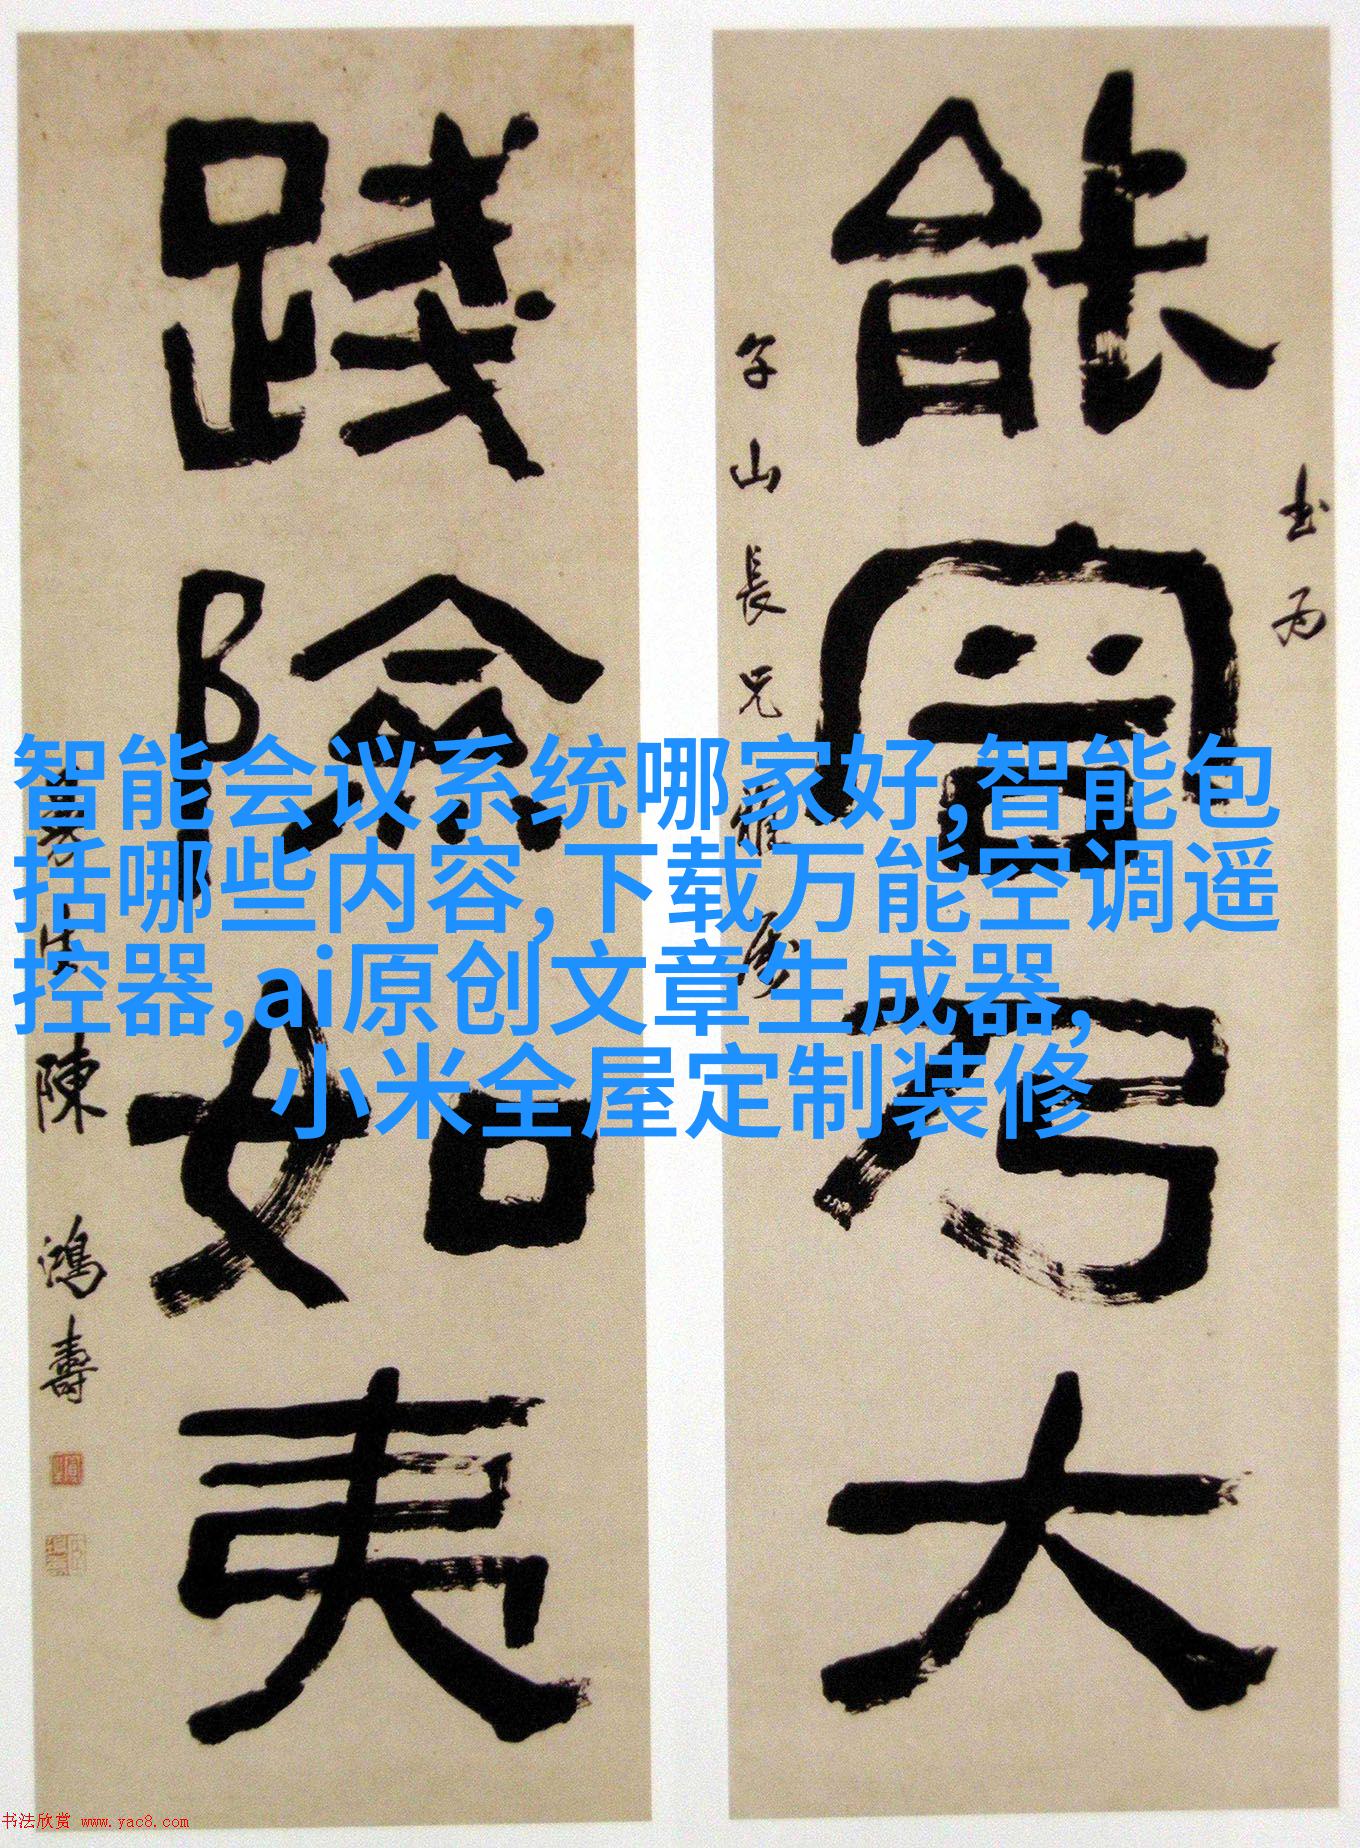 書為
能容乃大
子山長兄
踐險如夷
陳鴻壽
智能会议系统哪家好,智能包
括哪些内容,下载万能空调遥
控器,ai原创文章生成器,
小米全屋定制装修
书法欣赏 www.yac8.com